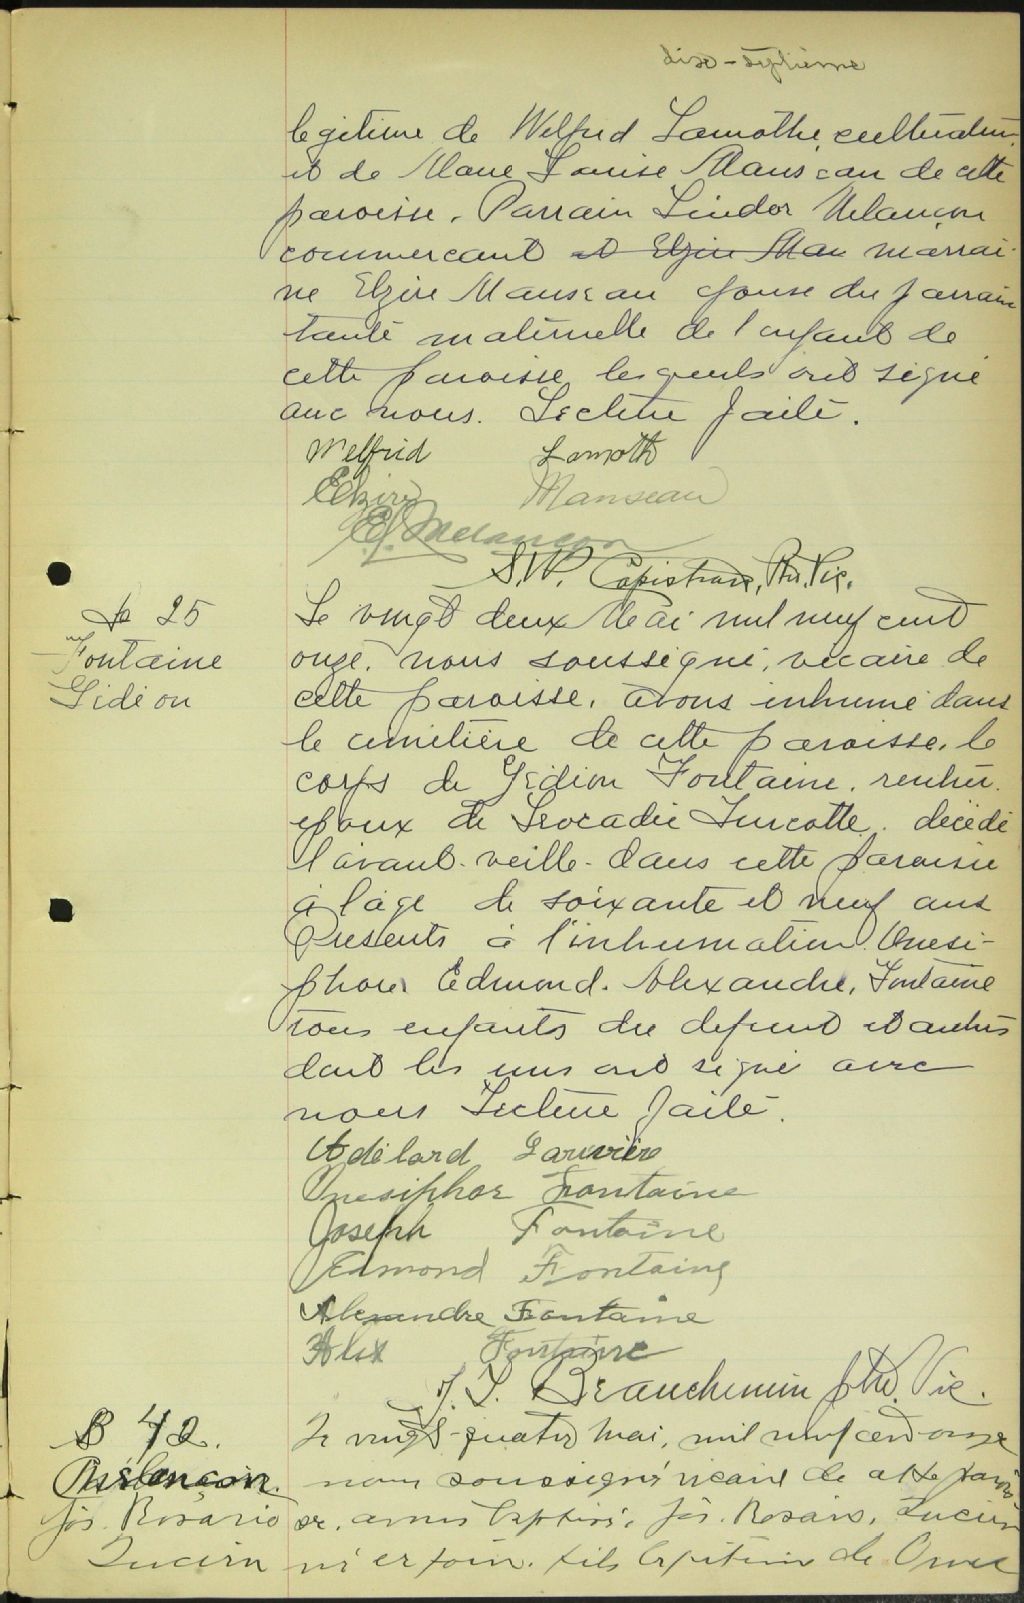 dix-septième
legitime de Wilfrid Lamothe, cultivateur,
et de Marie Louise Manseau de cette
paroisse. Parrain Lindor Melançon
commercant et Elzire Man marrai-
ne Elzire Manseau epouse du parrain
tante maternelle de l'enfant de
cette paroisse lesquels ont signé
avec nous. Lecture faite.
Welfrid Lamoth
Elzire Manseau
Melançon
Capistrant, Ptr. Vic.
S 25
Fontaine
Gédéon
Le vingt deux Mai mil neuf cent
onze, nous soussigné, vicaire de
cette paroisse, avons inhumé dans
le cimetière de cette paroisse, le
corps de Gédéon Fontaine, rentier,
epoux de Leocadie Turcotte, décédé
l'avant-veille dans cette paroisse
à l'âge de soixante et neuf ans
Présents à l'inhumation Onesi-
phore, Edmond, Alexandre, Fontaine
tous enfants du defunt et autres
dont les uns ont signé avec
nous Lecture faite.
Adélard Lariviere
Onesiphor Fontaine
Joseph Fontaine
Edmond Fontaine
Alexandre Fontaine
Alex Fontaine
J. L. Beauchemin ptre. Vic.
B 42.
Melançon.
Jos. Rosario
Lucien
Le vingt-quatre mai, mil neuf cent onze
nous soussigné vicaire de cette parois-
se, avons baptisé, Jos. Rosario, Lucien
né ce jour, fils légitime de Omer